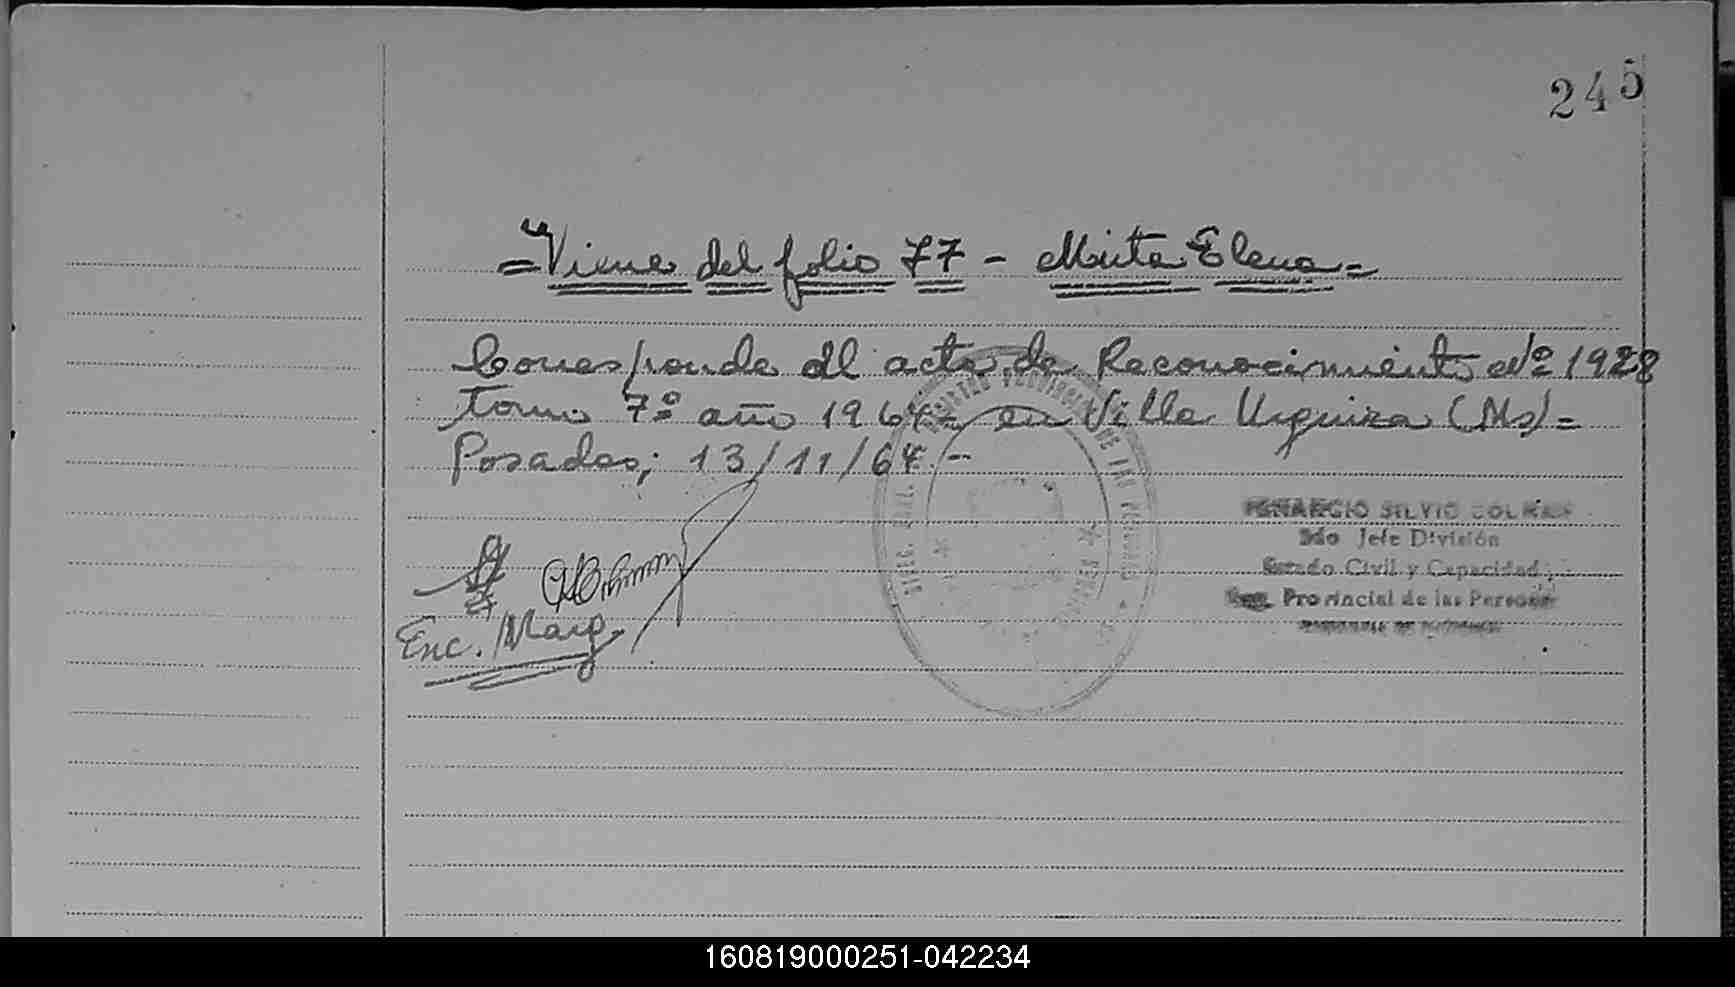 245
=Viene del folio 77 - Mirta Elena=
Corresponde al acta de Reconocimiento Nº 1928
tomo 7º año 1964= en Villa Urquiza (Ms)=
Posadas; 13/11/64.-
SILVIO
2do Jefe División
Estado Civil y Capacidad
Reg. Provincial de las Personas
Enc. Marg.
160819000251-042234